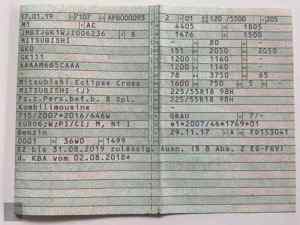 17.01.19 7107 APB000093
M1 AC
JMBXJGK1WJZ006236 8
MITSUBISHI
GK0
GK111
6AMAM665CAAA
Mitsubishi Eclipse Cross
MITSUBISHI (J)
Fz.z.Pers.bef.b. 8 Spl.
Kombilimousine
715/2007*2016/646W
EURO6;W;PI/CI; M, N1 I
Benzin
0001 36W0 1499
EZ bis 31.08.2019 zulässig. Ausn. (§ 8 Abs. 2 EG-FGV)
d. KBA vom 02.08.2018*
2 01 120 /5500 205
4405 1805
1676 1500
- 80 -
151 2050 2050
1200 1160 -
1200 1160 -
78 3750 65
1600 750 5 -
225/55R18 98H
225/55R18 98H
-
GRAU 7/-
e1*2007/46*1769*01
29.11.17 A FD153041